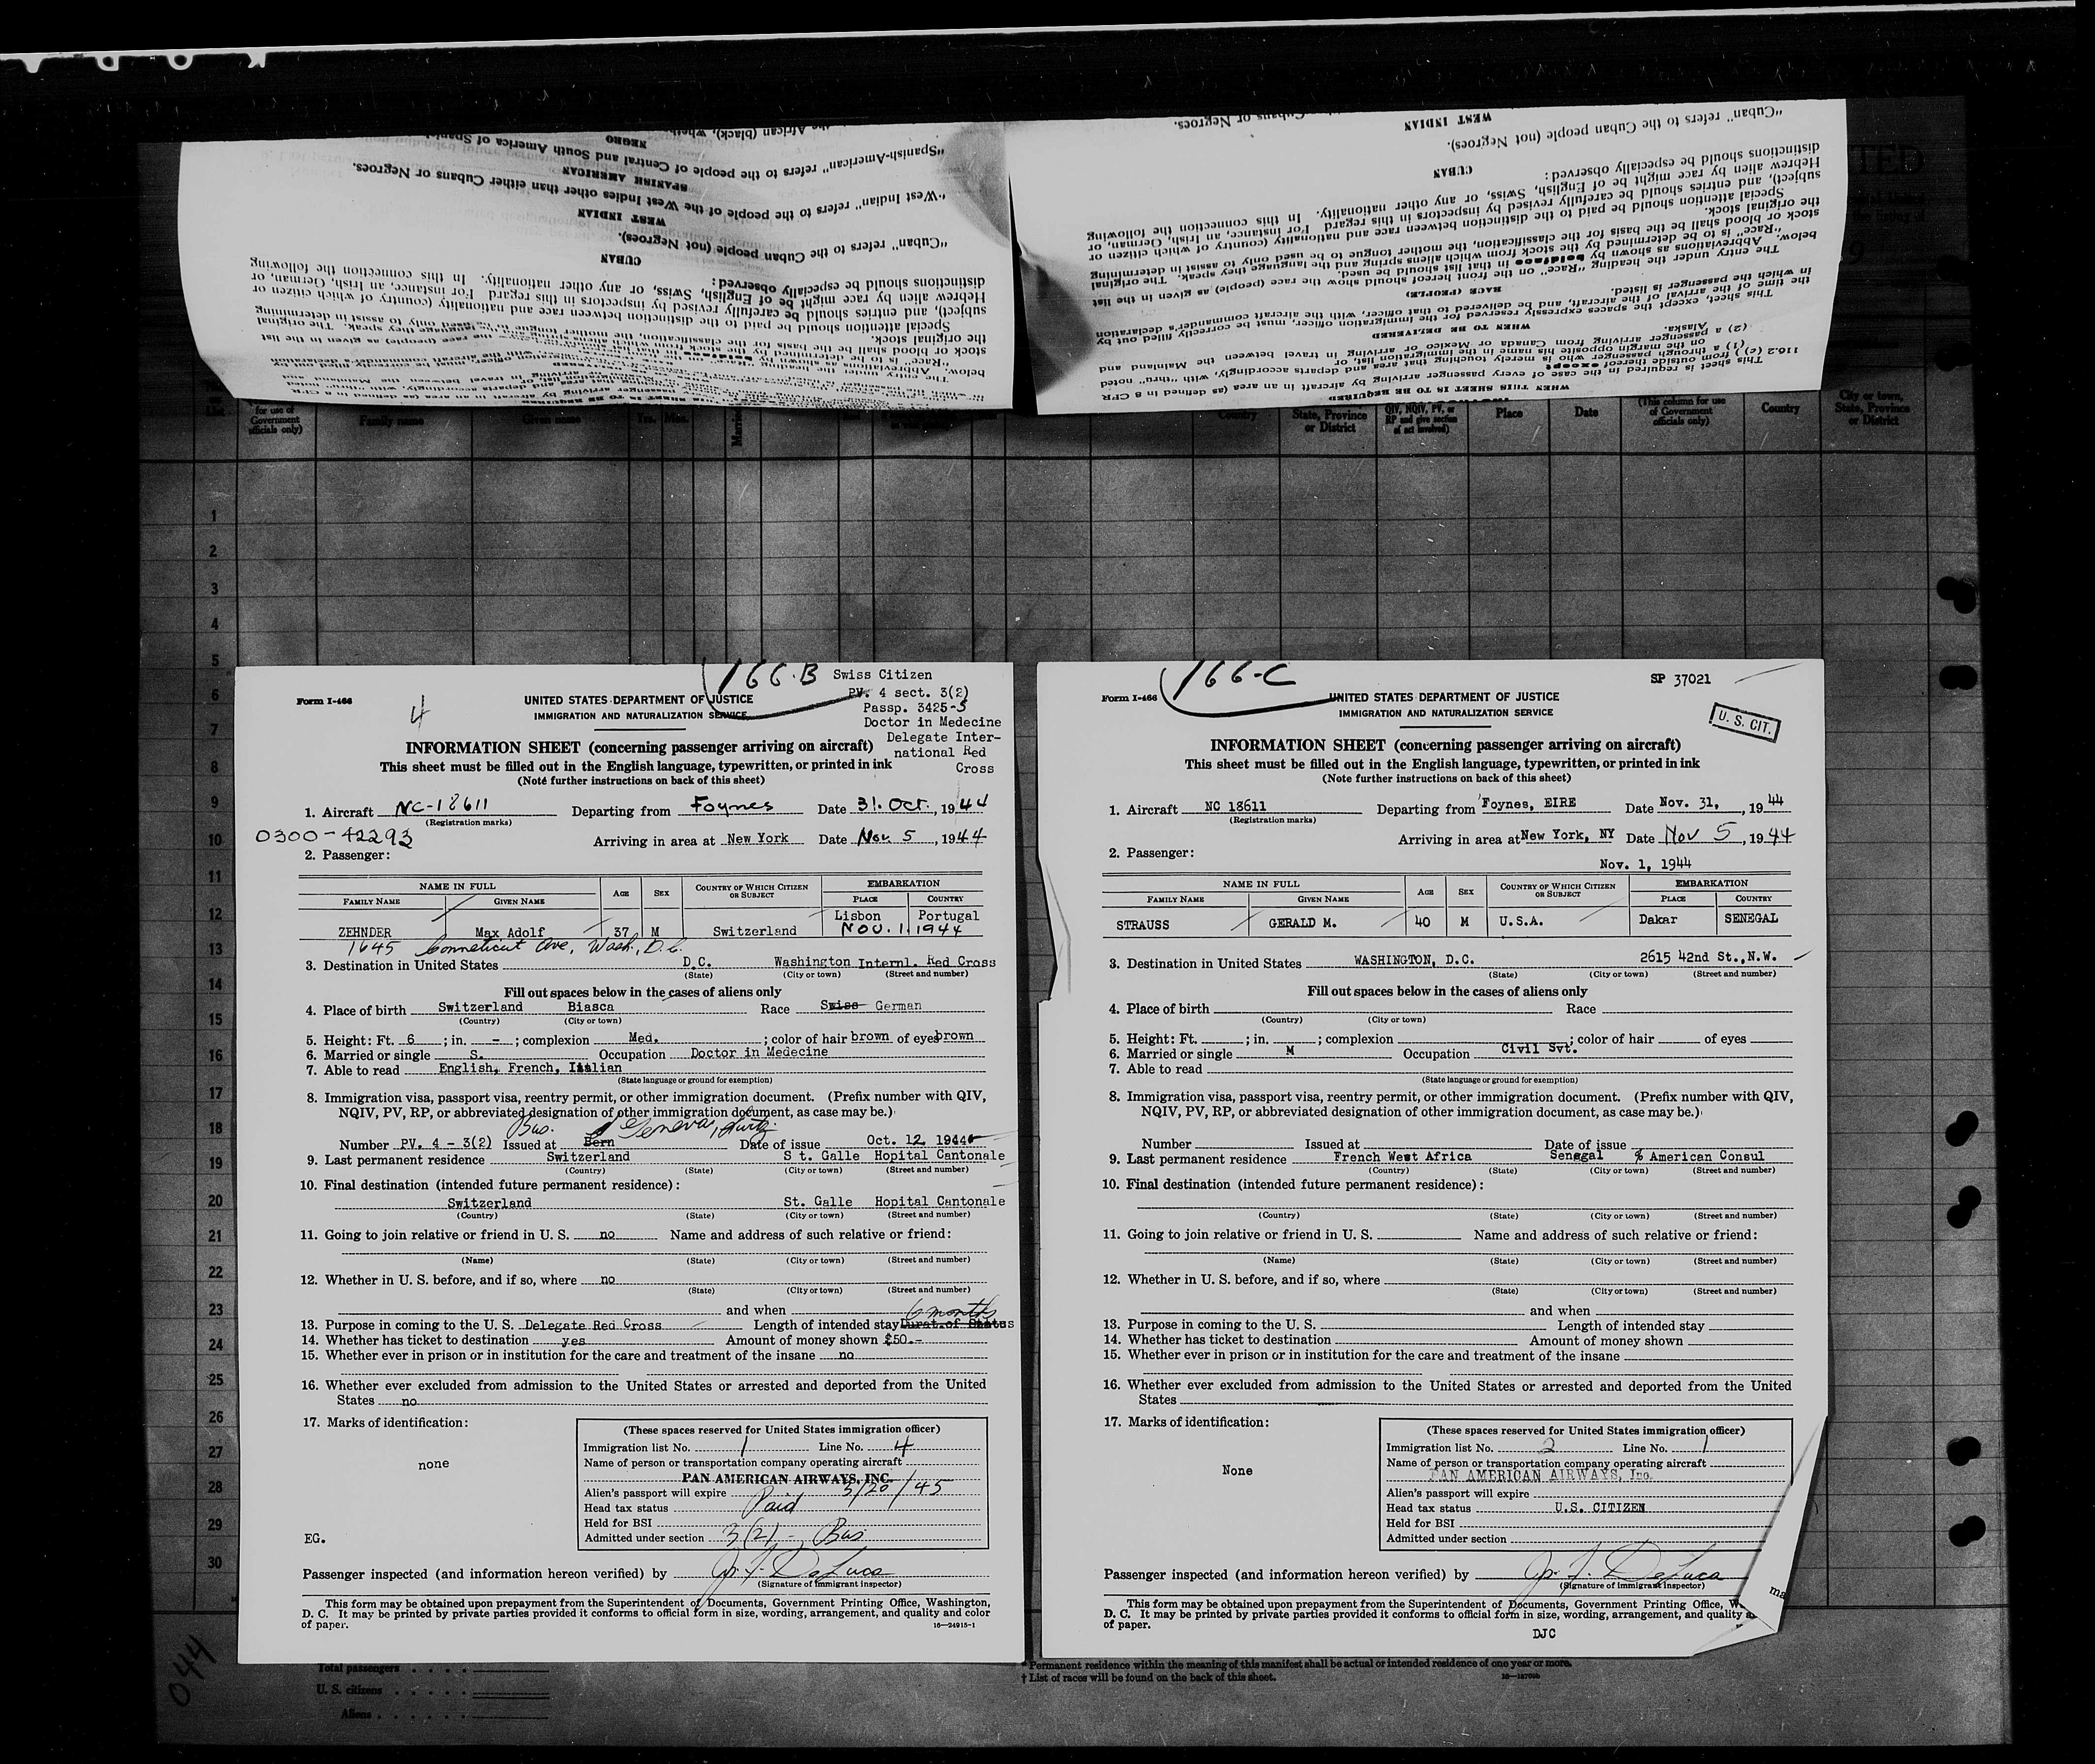 the African (black), wheth
NEGRO
"Spanish-American" refers to the people of Central and South America of Spani
SPANISH AMERICAN
"West Indian" refers to the people of the West Indies other than either Cubans or Negroes.
WEST INDIAN
"Cuban" refers to the Cuban people (not Negroes).
CUBAN
distinctions should be especially observed:
Hebrew alien by race might be of English, Swiss, or any other nationality. In this connection the following
subject), and entries should be carefully revised by inspectors in this regard For instance, an Irish, German, or
Special attention should be paid to the distinction between race and nationality (country of which citizen or
the original stock.
stock or blood shall be the basis for the classification, the mother tongue to be used only to assist in determining
Cubans or Negroes.
WEST INDIAN
"Cuban" refers to the Cuban people (not Negroes).
CUBAN
distinctions should be especially observed:
Hebrew alien by race might be of English, Swiss, or any other nationality. In this connection the following
subject), and entries should be carefully revised by inspectors in this regard For instance, an Irish, German, or
Special attention should be paid to the distinction between race and nationality (country of which citizen or
the original stock.
stock or blood shall be the basis for the classification, the mother tongue to be used only to assist in determining
"Race" is to be determined by the stock from which aliens spring and the language they speak. The original
below. Abbreviations as shown by boldface in that list should be used.
The entry under the heading "Race" on the front hereof should show the race (people) as given in the list
RACE (PEOPLE)
in which the passenger is listed.
the time of the arrival of the aircraft, and be delivered to that officer, with the aircraft commander's declaration
This sheet, except the spaces expressly reserved for the immigration officer, must be correctly filled out by
WHEN TO BE DELIVERED
Alaska.
(2) a passenger arriving from Canada or Mexico or arriving in travel between the Mainland and
on the margin opposite his name in the immigration list, or
(1) a through passenger who is merely touching that area and departs accordingly, with "thru" noted
116.2 (c)) from outside thereof except
This sheet is required in the case of every passenger arriving by aircraft in an area (as defined in 8 CFR
WHEN THIS SHEET IS TO BE REQUIRED
for use of Government officials only)
Family name
Given name
Yrs.
Mos.
Country
State, Province or District
QIV, NQIV, PV, or RP and give section of act involved)
Place
Date
(This column for use of Government officials only)
Country
City or town, State, Province or District
1
2
3
4
5
6
7
8
9
10
11
12
13
14
15
16
17
18
19
20
21
22
23
24
25
26
27
28
29
30
166-B
Swiss Citizen
PV. 4 sect. 3(2)
Passp. 3425-5
Doctor in Medecine
Delegate Inter-
national Red
Cross
Form I-466
4
UNITED STATES DEPARTMENT OF JUSTICE
IMMIGRATION AND NATURALIZATION SERVICE
INFORMATION SHEET (concerning passenger arriving on aircraft)
This sheet must be filled out in the English language, typewritten, or printed in ink
(Note further instructions on back of this sheet)
1. Aircraft NC-18611 Departing from Foynes Date 31. Oct., 1944
(Registration marks)
0300-42293
Arriving in area at New York Date Nov. 5, 1944
2. Passenger:
NAME IN FULL AGE SEX COUNTRY OF WHICH CITIZEN OR SUBJECT EMBARKATION
FAMILY NAME GIVEN NAME PLACE COUNTRY
Lisbon Portugal
ZEHNDER Max Adolf 37 M Switzerland NOV. 1. 1944
1645 Conneticut Ave, Wash., D.C.
3. Destination in United States D.C. Washington Internl. Red Cross
(State) (City or town) (Street and number)
Fill out spaces below in the cases of aliens only
4. Place of birth Switzerland Biasca Race Swiss German
(Country) (City or town)
5. Height: Ft. 6; in. -; complexion Med.; color of hair brown of eyes brown
6. Married or single S. Occupation Doctor in Medecine
7. Able to read English, French, Italian
(State language or ground for exemption)
8. Immigration visa, passport visa, reentry permit, or other immigration document. (Prefix number with QIV,
NQIV, PV, RP, or abbreviated designation of other immigration document, as case may be.)
Bus. Geneva, Switz.
Number PV. 4 - 3(2) Issued at Bern Date of issue Oct. 12, 1944
9. Last permanent residence Switzerland St. Galle Hopital Cantonale
(Country) (State) (City or town) (Street and number)
10. Final destination (intended future permanent residence):
Switzerland St. Galle Hopital Cantonale
(Country) (State) (City or town) (Street and number)
11. Going to join relative or friend in U. S. no Name and address of such relative or friend:
(Name) (State) (City or town) (Street and number)
12. Whether in U. S. before, and if so, where no
(State) (City or town) (Street and number)
and when 6 months
13. Purpose in coming to the U. S. Delegate Red Cross Length of intended stay Durat.of Status
14. Whether has ticket to destination yes Amount of money shown £50.-
15. Whether ever in prison or in institution for the care and treatment of the insane no
16. Whether ever excluded from admission to the United States or arrested and deported from the United
States no
17. Marks of identification:
none
(These spaces reserved for United States immigration officer)
Immigration list No. 1 Line No. 4
Name of person or transportation company operating aircraft
PAN AMERICAN AIRWAYS, INC.
Alien's passport will expire 3/20/45
Head tax status Paid
Held for BSI
Admitted under section 3(2) - Bus
EG.
Passenger inspected (and information hereon verified) by J. F. DeLuca
(Signature of immigrant inspector)
This form may be obtained upon prepayment from the Superintendent of Documents, Government Printing Office, Washington,
D. C. It may be printed by private parties provided it conforms to official form in size, wording, arrangement, and quality and color
of paper.
16—24915-1
166-C
SP 37021
Form I-466
UNITED STATES DEPARTMENT OF JUSTICE
IMMIGRATION AND NATURALIZATION SERVICE
U. S. CIT.
INFORMATION SHEET (concerning passenger arriving on aircraft)
This sheet must be filled out in the English language, typewritten, or printed in ink
(Note further instructions on back of this sheet)
1. Aircraft NC 18611 Departing from Foynes, EIRE Date Nov. 31, 1944
(Registration marks)
Arriving in area at New York, NY Date Nov 5, 1944
2. Passenger:
Nov. 1, 1944
NAME IN FULL AGE SEX COUNTRY OF WHICH CITIZEN OR SUBJECT EMBARKATION
FAMILY NAME GIVEN NAME PLACE COUNTRY
STRAUSS GERALD M. 40 M U.S.A. Dakar SENEGAL
3. Destination in United States WASHINGTON, D.C. 2615 42nd St.,N.W.
(State) (City or town) (Street and number)
Fill out spaces below in the cases of aliens only
4. Place of birth Race
(Country) (City or town)
5. Height: Ft. ; in. ; complexion ; color of hair of eyes
6. Married or single M Occupation Civil Svt.
7. Able to read
(State language or ground for exemption)
8. Immigration visa, passport visa, reentry permit, or other immigration document. (Prefix number with QIV,
NQIV, PV, RP, or abbreviated designation of other immigration document, as case may be.)
Number Issued at Date of issue
9. Last permanent residence French West Africa Senegal % American Consul
(Country) (State) (City or town) (Street and number)
10. Final destination (intended future permanent residence):
(Country) (State) (City or town) (Street and number)
11. Going to join relative or friend in U. S. Name and address of such relative or friend:
(Name) (State) (City or town) (Street and number)
12. Whether in U. S. before, and if so, where
(State) (City or town) (Street and number)
and when
13. Purpose in coming to the U. S. Length of intended stay
14. Whether has ticket to destination Amount of money shown
15. Whether ever in prison or in institution for the care and treatment of the insane
16. Whether ever excluded from admission to the United States or arrested and deported from the United
States
17. Marks of identification:
None
(These spaces reserved for United States immigration officer)
Immigration list No. 2 Line No. 1
Name of person or transportation company operating aircraft
PAN AMERICAN AIRWAYS, Inc.
Alien's passport will expire
Head tax status U.S. CITIZEN
Held for BSI
Admitted under section
Passenger inspected (and information hereon verified) by J. F. DeLuca
(Signature of immigrant inspector)
This form may be obtained upon prepayment from the Superintendent of Documents, Government Printing Office, W
D. C. It may be printed by private parties provided it conforms to official form in size, wording, arrangement, and quality a
of paper.
DJC
044
Total passengers
U. S. citizens
Aliens
* Permanent residence within the meaning of this manifest shall be actual or intended residence of one year or more.
† List of races will be found on the back of this sheet.